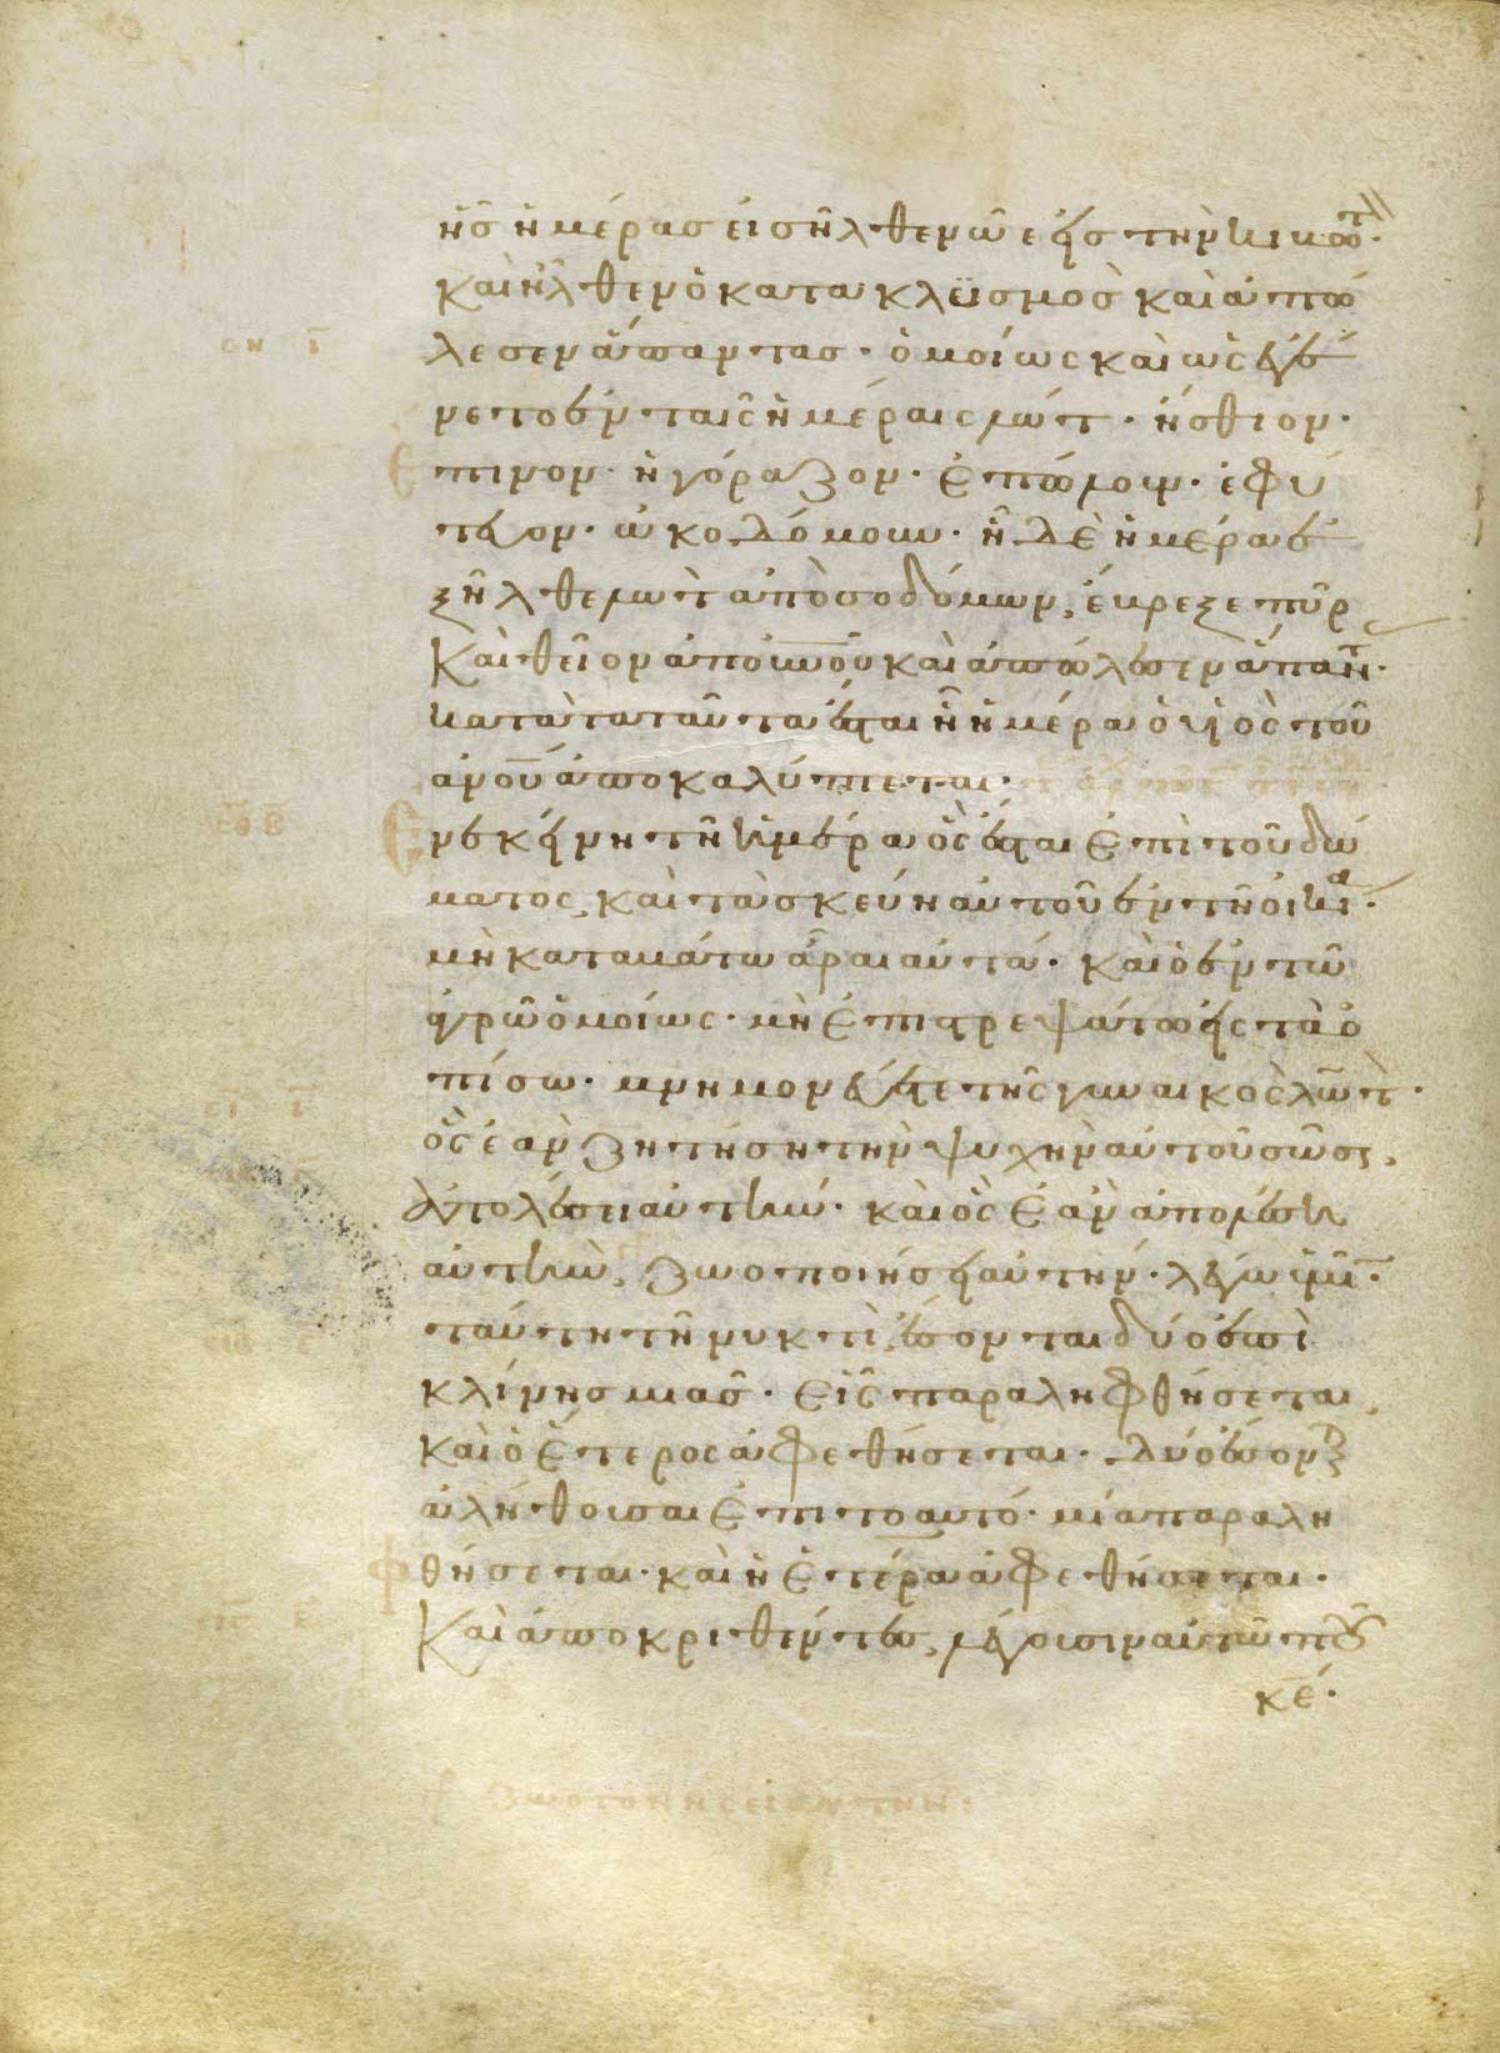 ἧς ἡμέρας εἰσῆλθεν νῶε εἰς τὴν κιβωτ·
καὶ ἦλθεν ὁ κατακλϋσμὸς καὶ ἀπώ
λεσεν ἅπαντας· ὁμοίως καὶ ὡς ἐγέ
νετο ἐν ταῖς ἡμέραις λώτ· ἤσθιον·
ἔπινον· ἠγόραζον· ἐπώλουν· ἐφύ
τευον· ᾠκοδόμουν· ἧ δὲ ἡμέρα ἐ
ξῆλθε λὼτ ἀπὸ σοδόμων, ἔβρεξε πῦρ
καὶ θεῖον ἀπ οὐνοῦ καὶ ἀπώλεσεν ἅπαντ·
κατὰ τὰ ταῦτα ἔσται ἧ ἡμέρα ὁ υἱὸς τοῦ
ἀνου ἀποκαλύπτεται·
σξβ Ἐν ἐκείνη τῆ ἡμέρα ὃς ἔσται ἐπὶ τοῦ δώ
ματος, καὶ τὰ σκεύη αὐτοῦ ἐν τῆ οἰκία·
μὴ καταβάτω ἆραι αὐτά· καὶ ὁ ἐν τῶ
ἀγρῶ ὁμοίως· μὴ ἐπιστρεψάτω εἰς τὰ ὀ
πίσω· μνημονεύετε τῆς γυναικὸς λῶτ·
ὃς ἐὰν ζητήση τὴν ψυχὴν αὐτοῦ σῶσαι,
ἀπολέσει αὐτήν· καὶ ὃς ἐὰν ἀπολέση
αὐτὴν, ζωοποιήσει αὐτήν· λέγω ὑμῖν·
ταύτη τῆ νυκτὶ, ἔσονται δύο ἐπὶ
κλίνης μιᾶς· εἷς παραληφθήσεται,
καὶ ὁ ἕτερος ἀφεθήσεται· δύο ἔσονται
ἀλήθουσαι ἐπιτοαυτό· μία παραλη
φθήσεται· καὶ ἡ ἑτέρα ἀφεθήσεται·
Καὶ ἀποκριθέντες, λέγουσιν αὐτῶ ποῦ
κέ·
ζωογονήσει αὐτὴν·